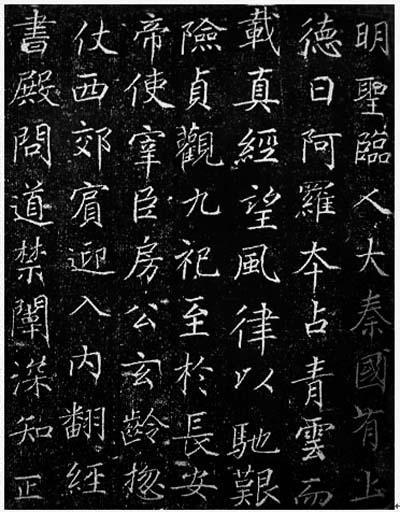 明聖臨人大秦國有上
德曰阿羅本占青雲而
載真經望風律以馳艱
險貞觀九祀至於長安
帝使宰臣房公玄齡惣
仗西郊賓迎入內翻經
書殿問道禁闈深知正